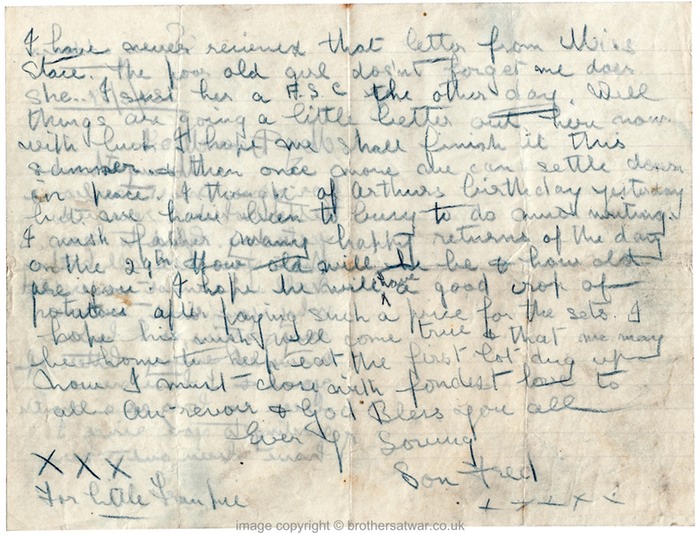 I have never recieved that letter from Miss
Stace. The poor old girl dosn't forget me does
she. I sent her a F.S.C the other day. Well
things are going a little better out here now
with luck I hope we shall finish it this
summer & then once more we can settle down
in peace. I thought of Arthurs birthday yesterday
but we have been to busy to do much writing.
I wish father many happy returns of the day
on the 29th How old will he be & how old
are you. I hope he will have a good crop of
potatoes after paying such a price for the sets. I
hope his wish will come true & that we may
be home to help eat the first lot dug up
Now I must close with fondest love to
all Au-revoir & God Bless you all
Ever Yr Loving
Son Fred
X X X
For little Frankie
+ + + x
image copyright © brothersatwar.co.uk